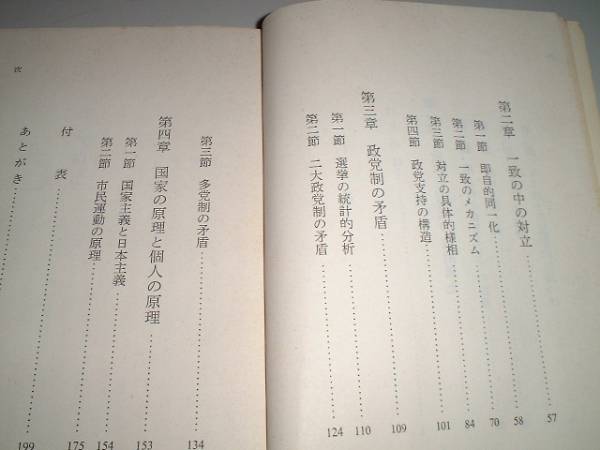 第二章 一致の中の対立……57
第一節 即自的同一化……58
第二節 一致のメカニズム……70
第三節 対立の具体的様相……84
第四節 政党支持の構造……101
第三章 政党制の矛盾……109
第一節 選挙の統計的分析……110
第二節 二大政党制の矛盾……124
第三節 多党制の矛盾……134
第四章 国家の原理と個人の原理……153
第一節 国家主義と日本主義……154
第二節 市民運動の原理……175
付表……199
あとがき……
次